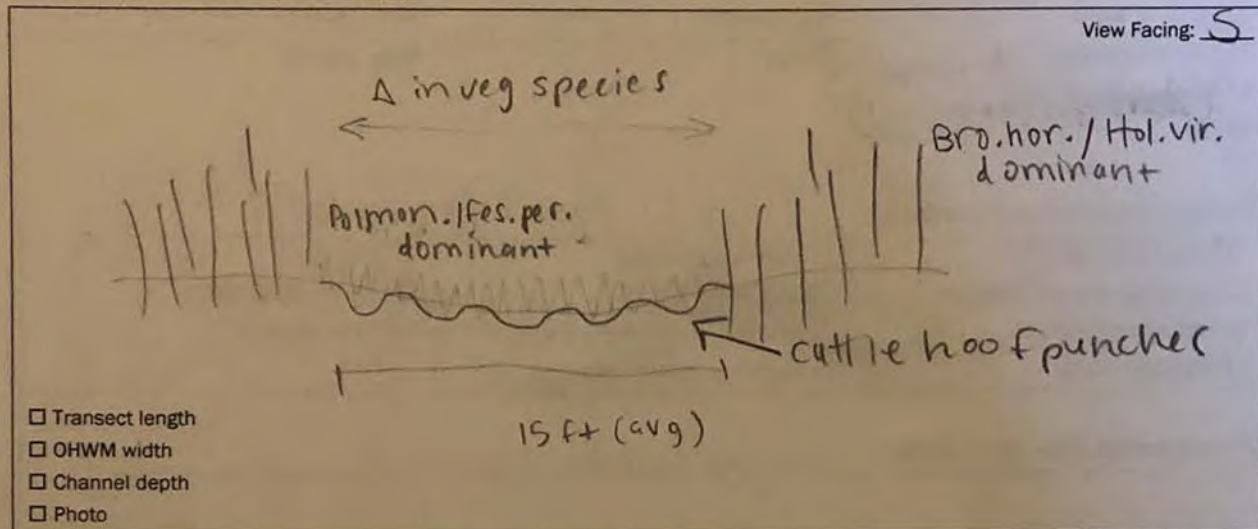 View Facing: S
Δ in veg species
Bro.hor./Hol.vir.
dominant
Polmon./Fes.per.
dominant
cattle hoof punches
15 ft (avg)
☐ Transect length
☐ OHWM width
☐ Channel depth
☐ Photo